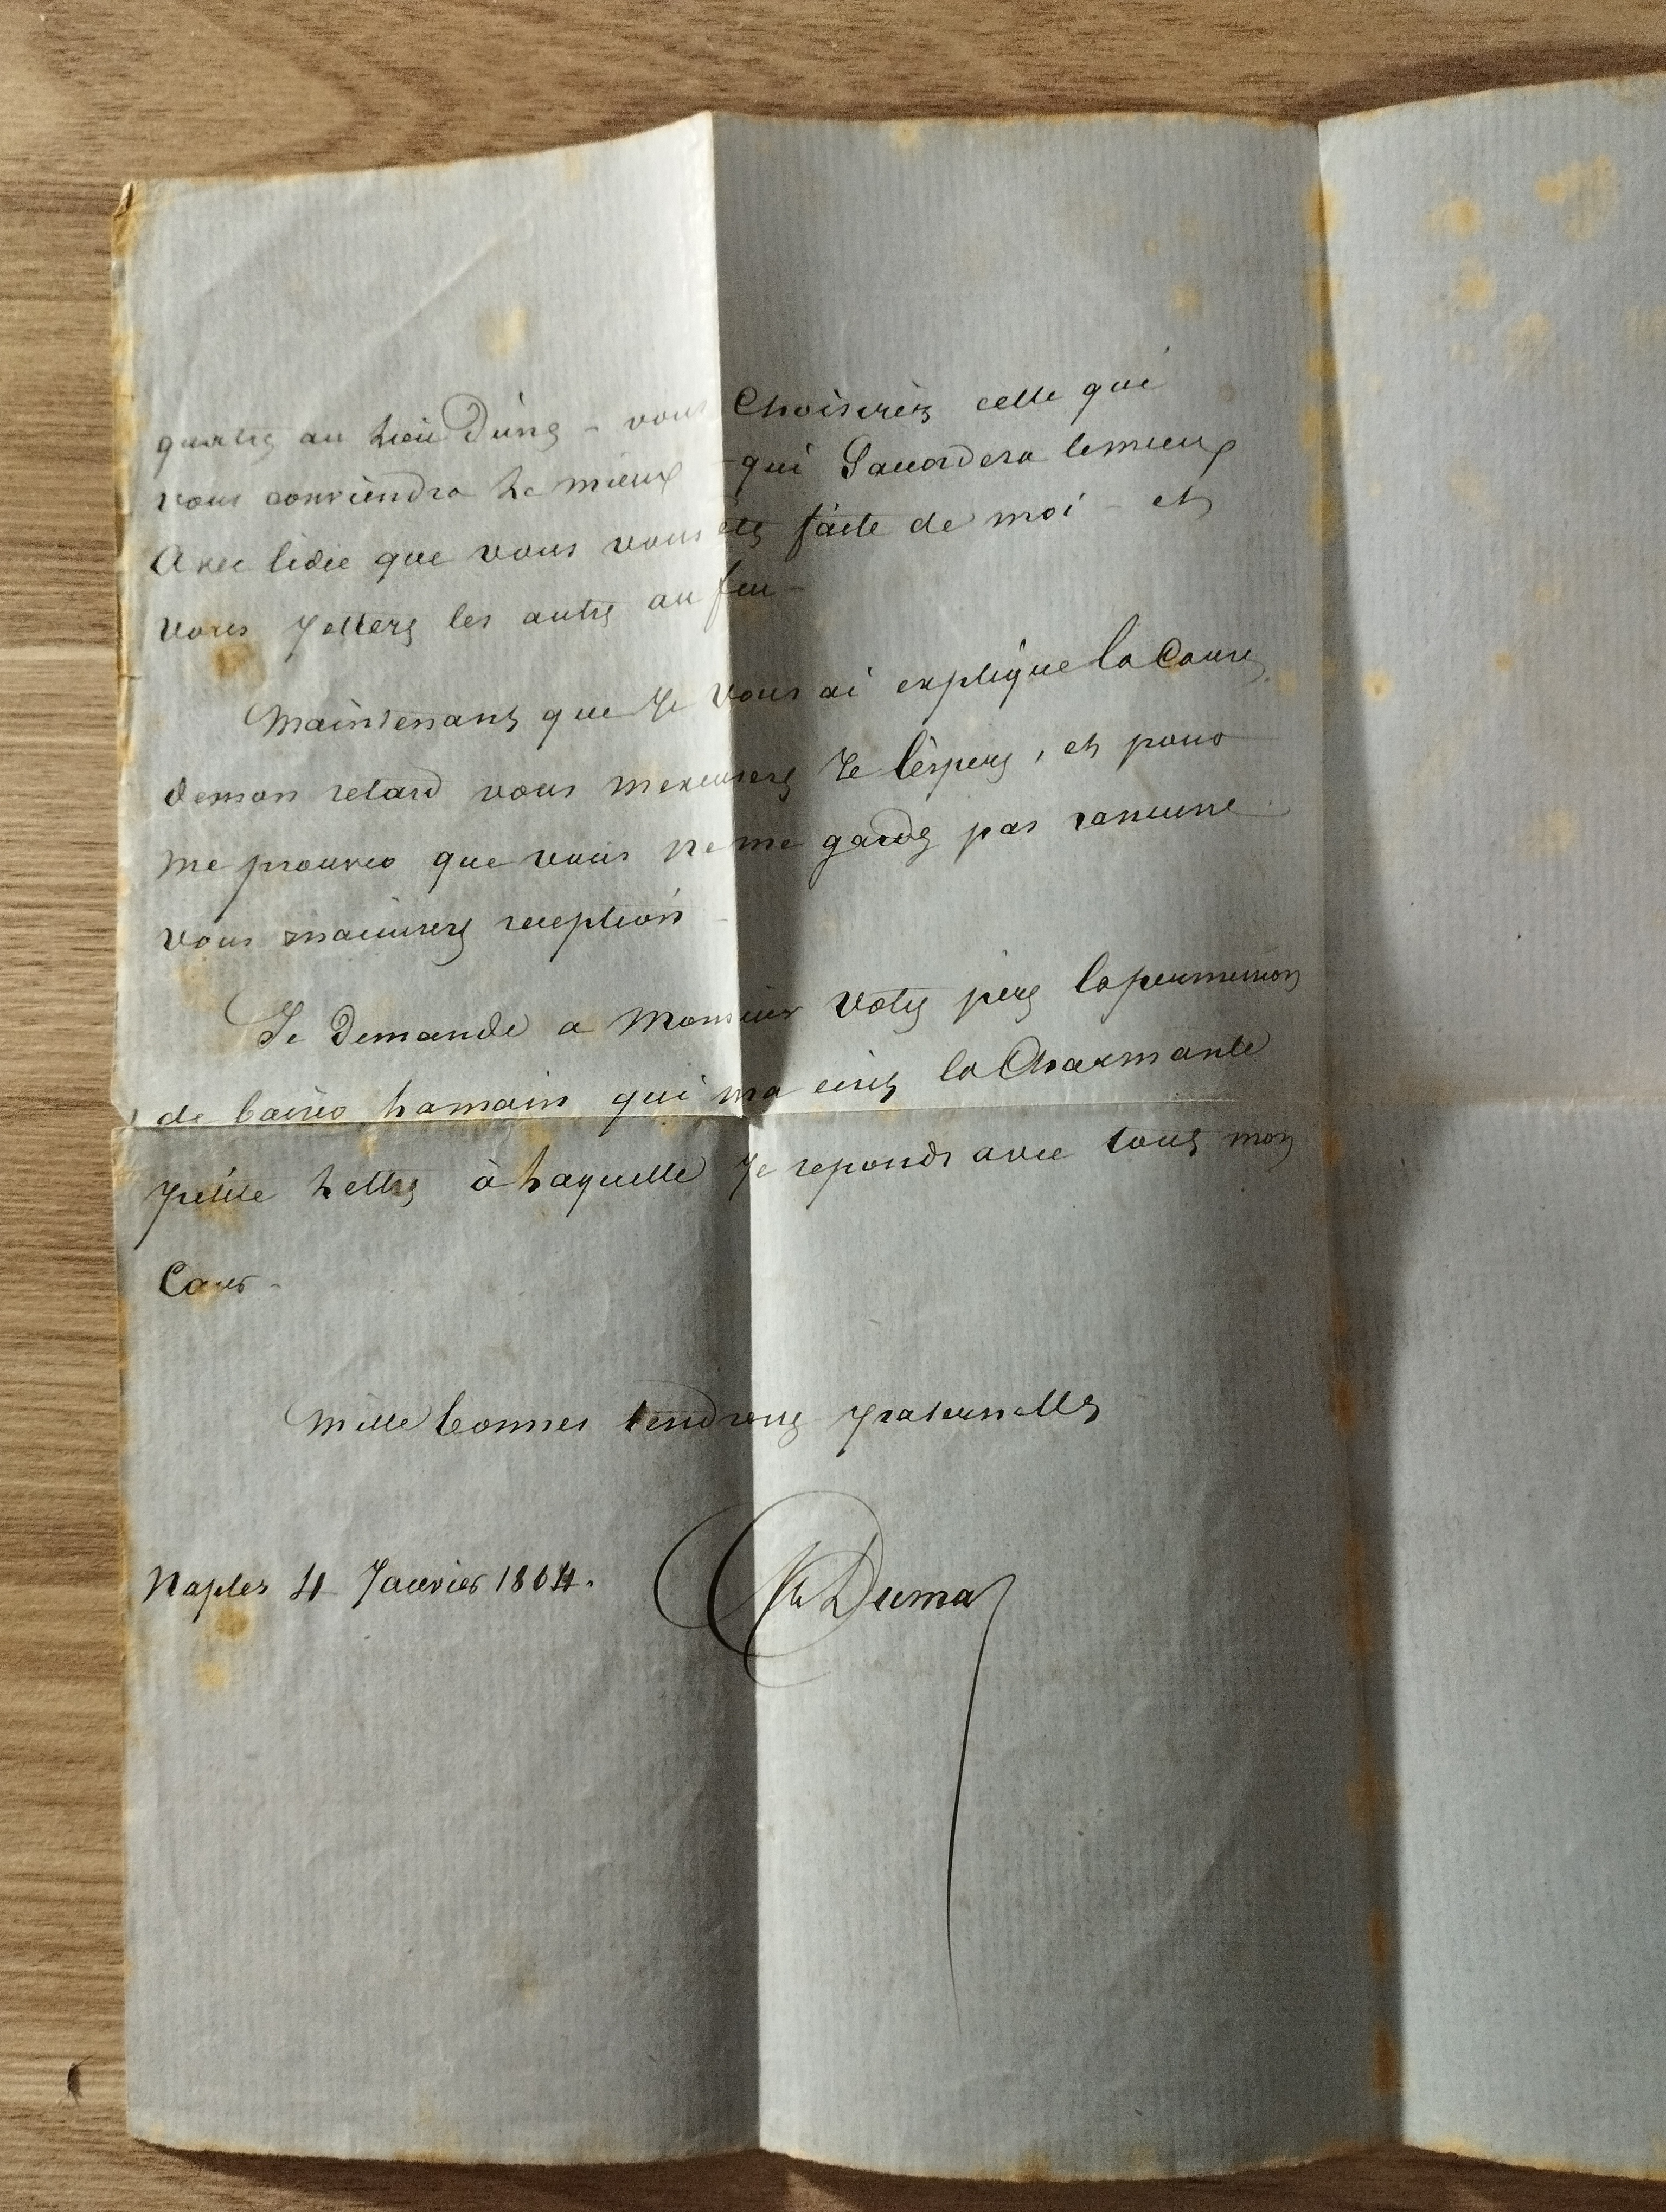 quatre au lieu d'une – vous choisirez celle qui
vous conviendra le mieux – qui s'accordera le mieux
avec l'idée que vous vous êtes faite de moi – et
vous jetterez les autres au feu –
Maintenant que je vous ai expliqué la cause
de mon retard vous m'excuserez je l'espère, et pour
me prouver que vous ne me gardez pas rancune
vous m'accuserez reception –
Je demande a Monsieur votre père la permission
de baiser la main qui m'a écrit la charmante
petite lettre à laquelle je reponds avec tout mon
cœur –
Mille bonnes tendresses paternelles
Naples 4 Janvier 1864.
Alex Dumas